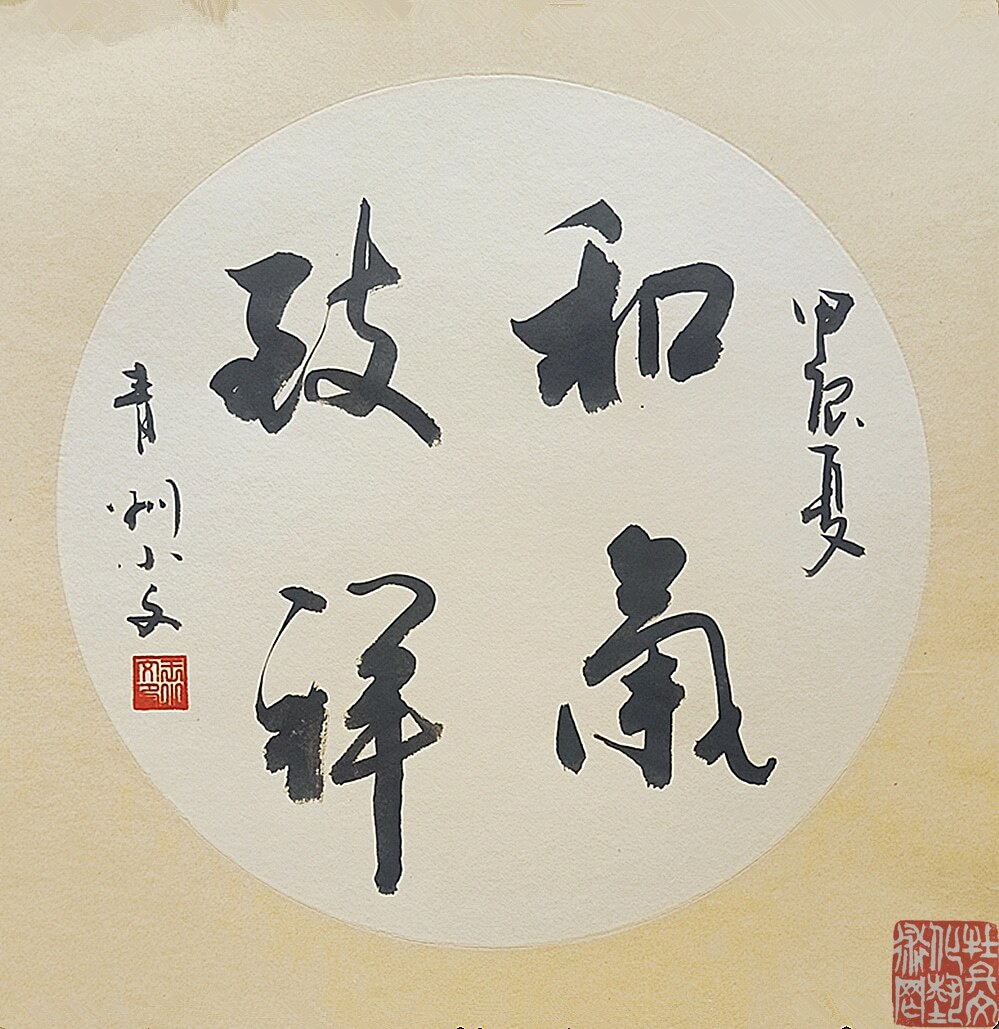 甲辰夏
和氣
致祥
青州小文